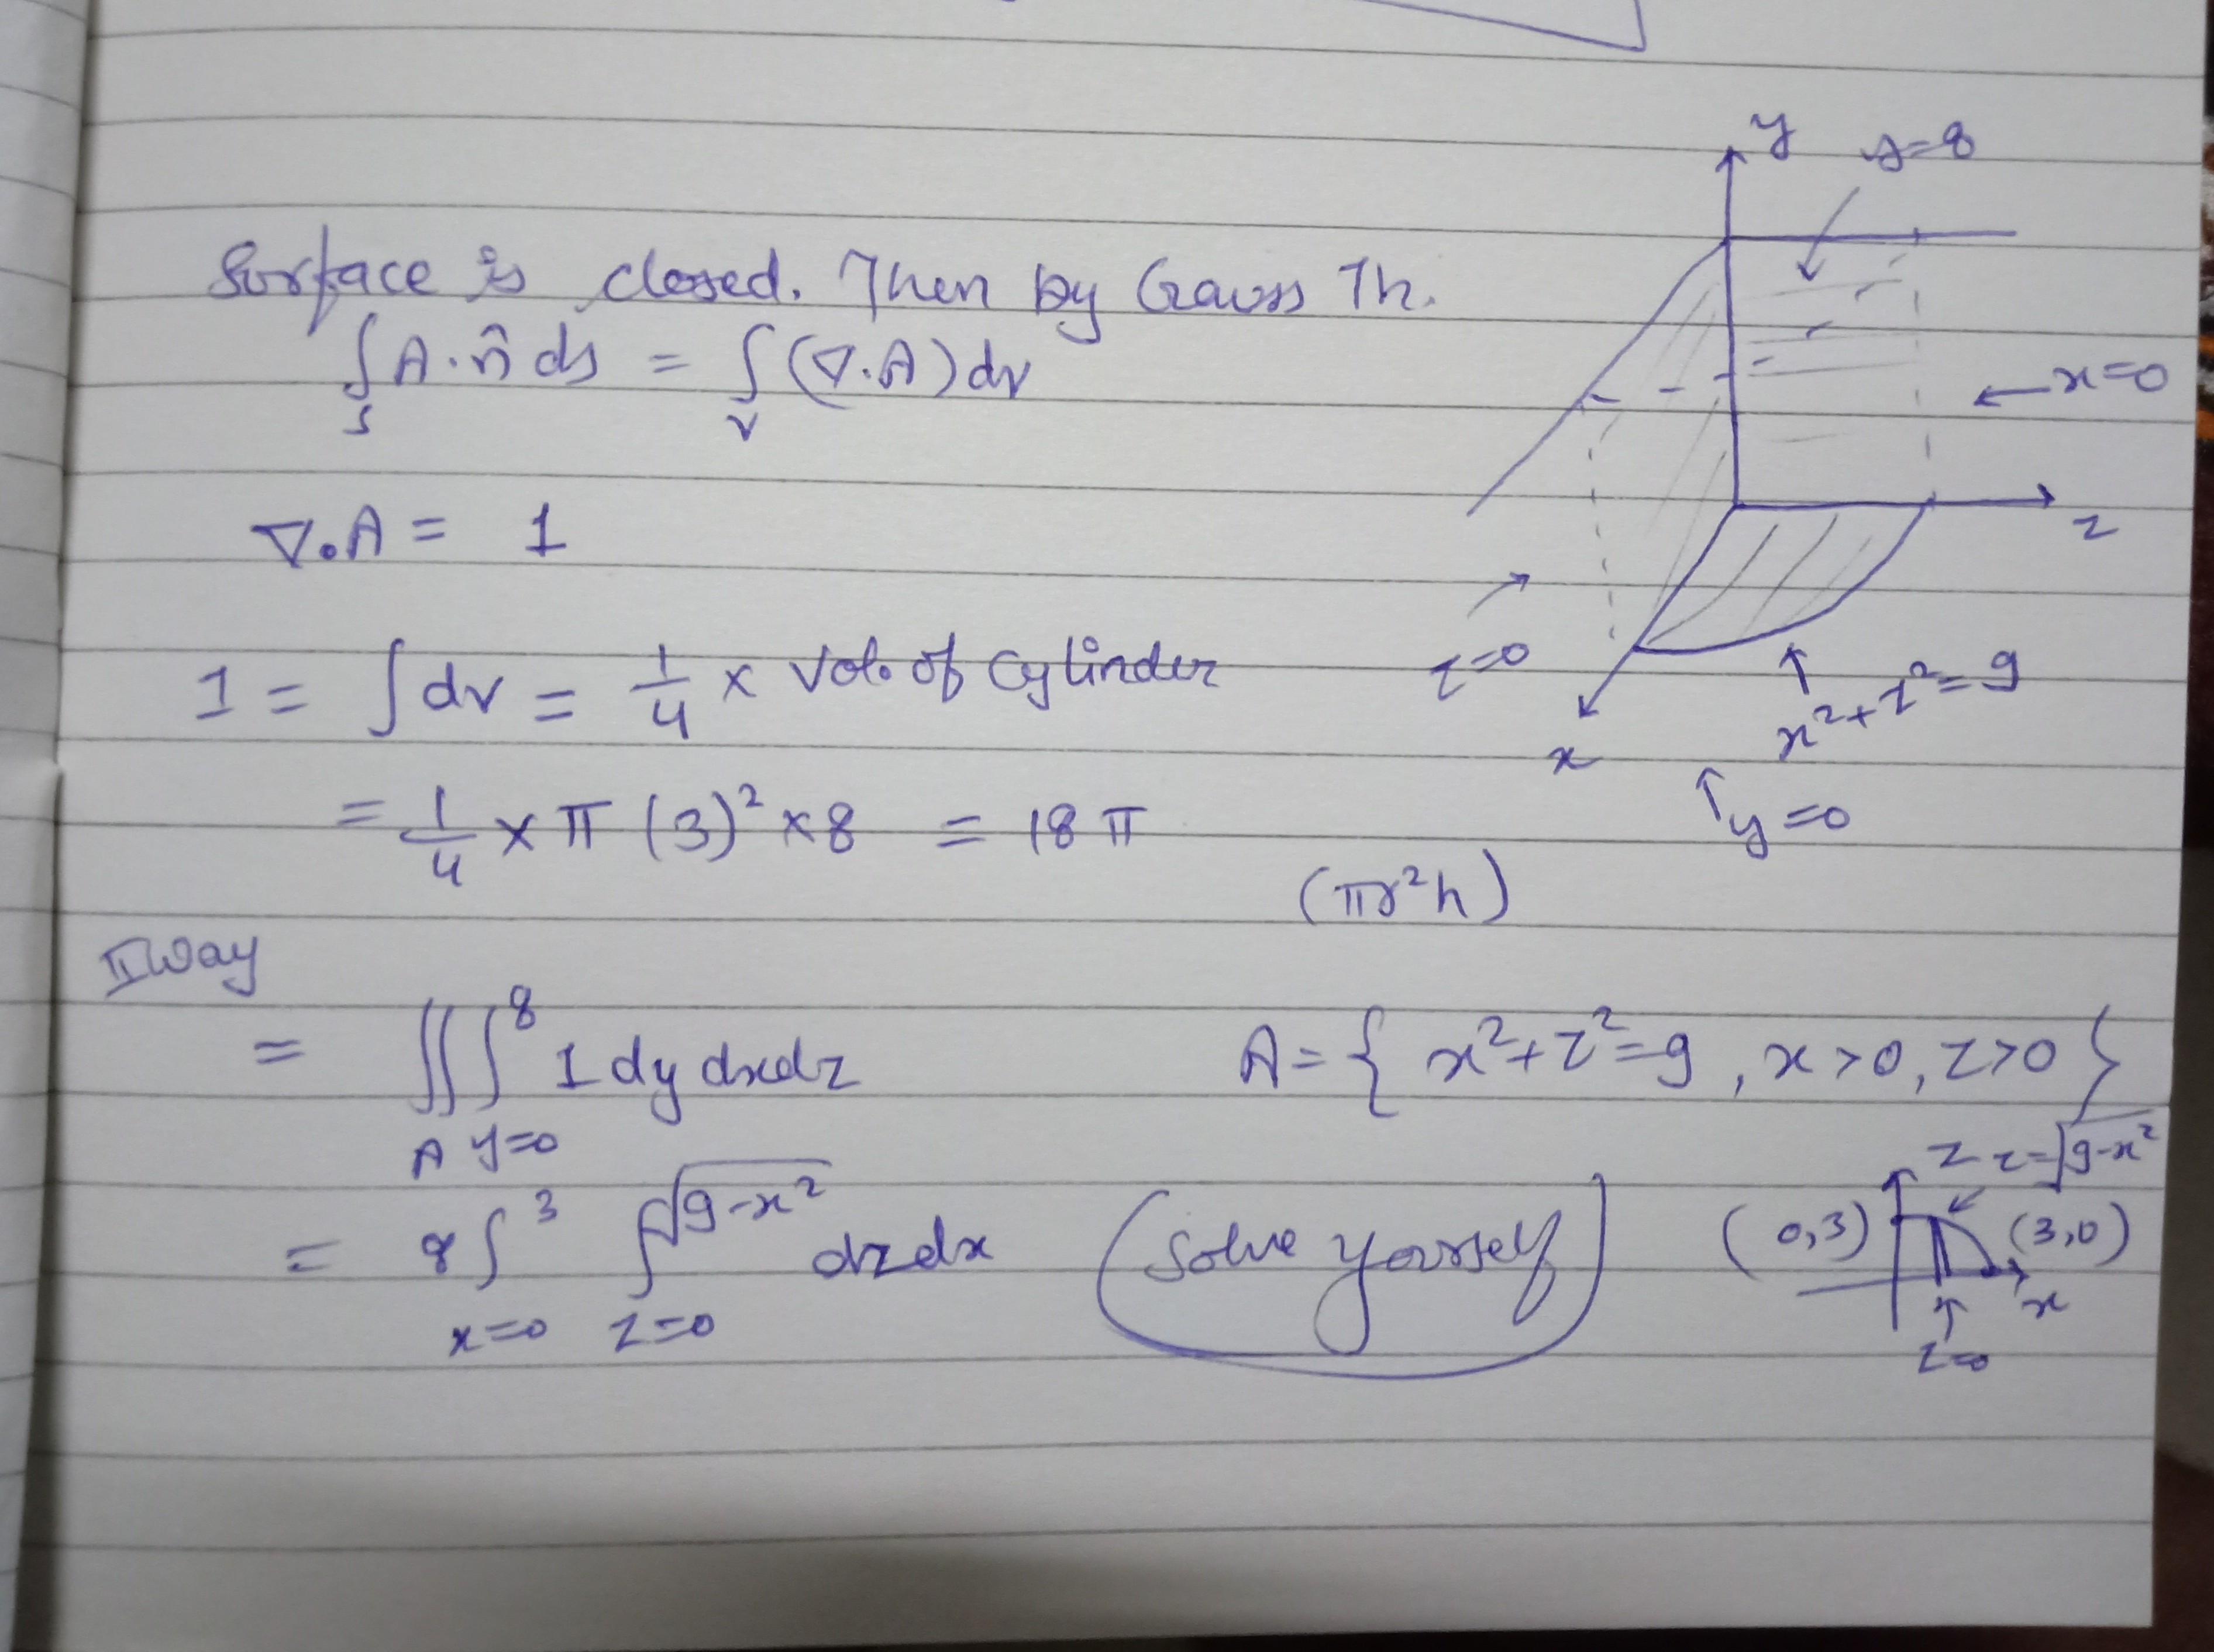 Surface is closed. Then by Gauss Th.
∫_S A·n̂ ds = ∫_V (∇·A) dv
∇·A = 1
1 = ∫dv = 1/4 × Vol. of Cylinder
= 1/4 × π (3)² × 8 = 18 π
(πr²h)
y
y=8
x=0
z
z=0
x²+z²=9
x
y=0
II Way
= ∬_A ∫_{y=0}^{8} 1 dy dxdz
A = { x²+z²=9, x>0, z>0 }
= 8 ∫_{x=0}^{3} ∫_{z=0}^{√9-x²} dzdx (Solve yourself)
z z=√9-x²
(0,3) (3,0)
x
z=0